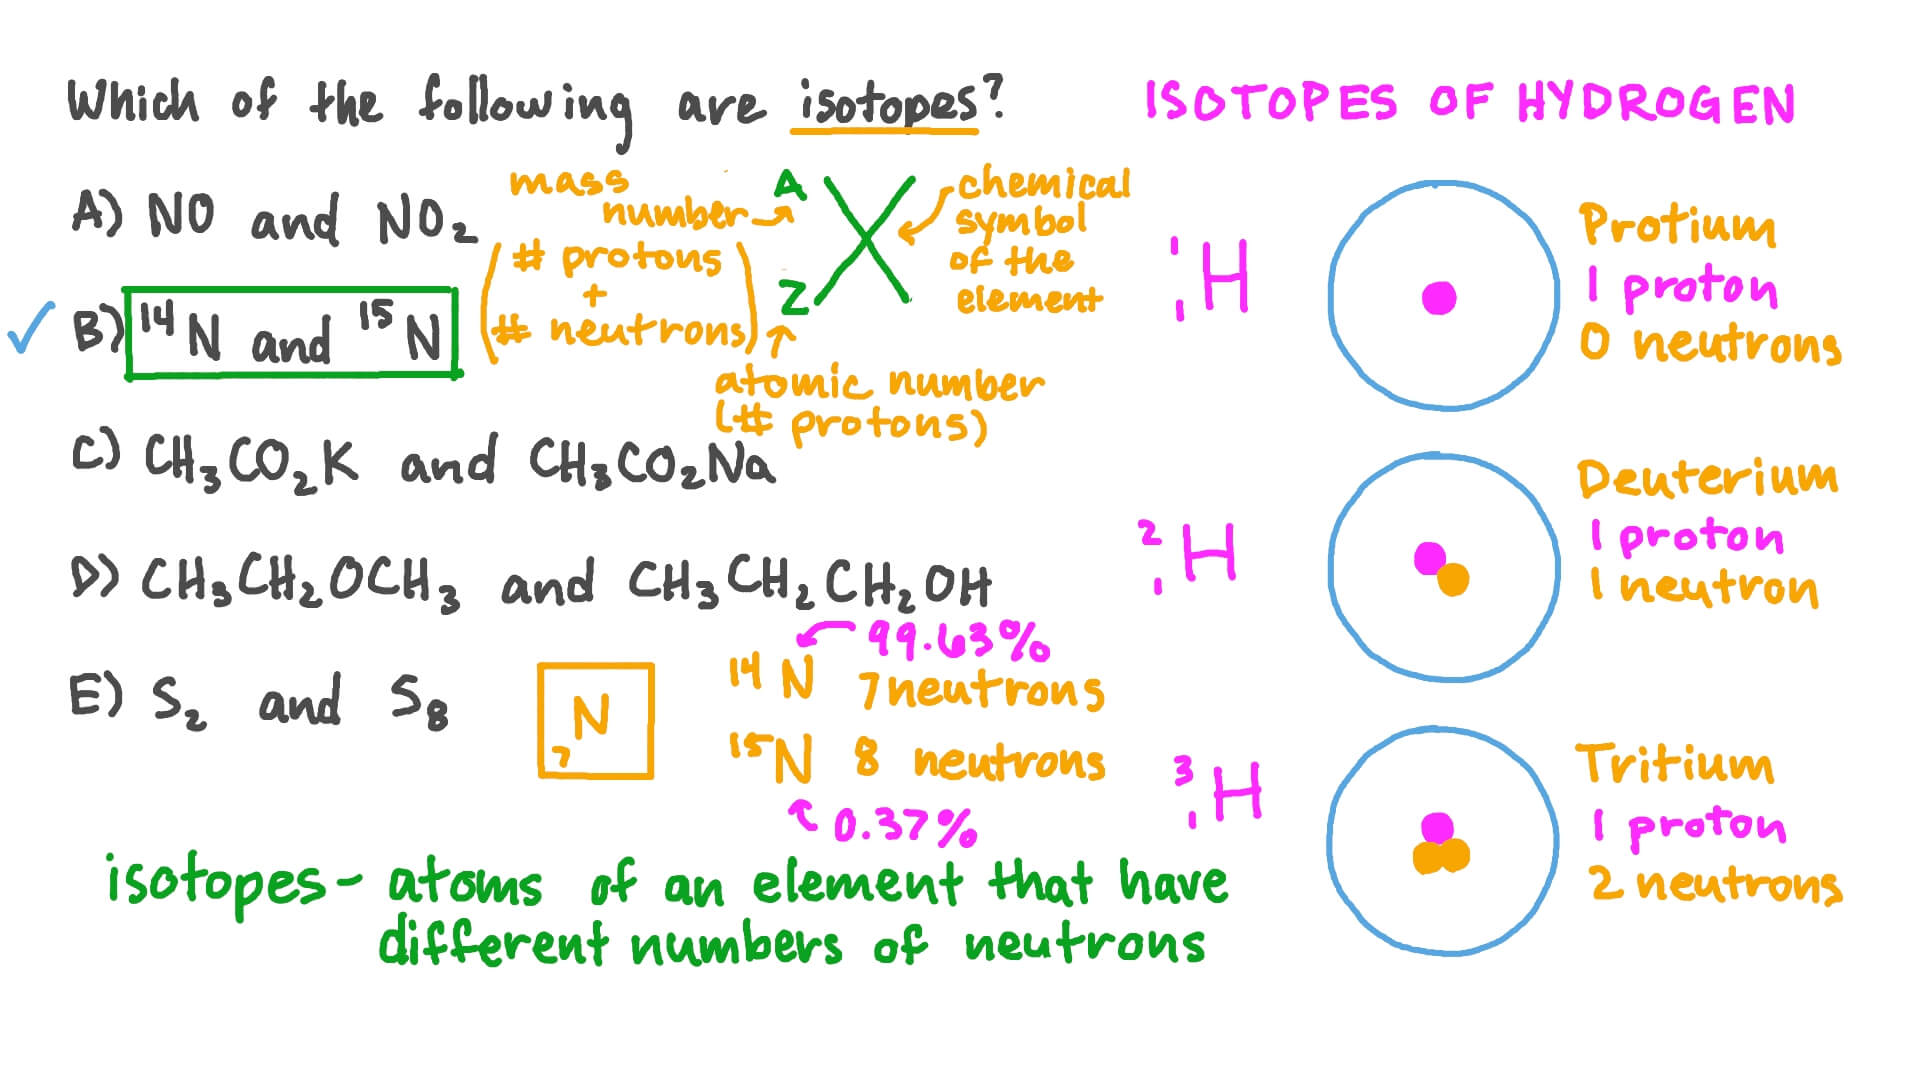 Which of the following are isotopes?
A) NO and NO₂
B) ¹⁴N and ¹⁵N
C) CH₃CO₂K and CH₃CO₂Na
D) CH₃CH₂OCH₃ and CH₃CH₂CH₂OH
E) S₂ and S₈
mass
number
(# protons
+
# neutrons)
A
X
Z
chemical
symbol
of the
element
atomic number
(# protons)
N
7
99.63%
¹⁴N 7 neutrons
¹⁵N 8 neutrons
0.37%
isotopes - atoms of an element that have
different numbers of neutrons
ISOTOPES OF HYDROGEN
¹₁H
Protium
1 proton
0 neutrons
²₁H
Deuterium
1 proton
1 neutron
³₁H
Tritium
1 proton
2 neutrons